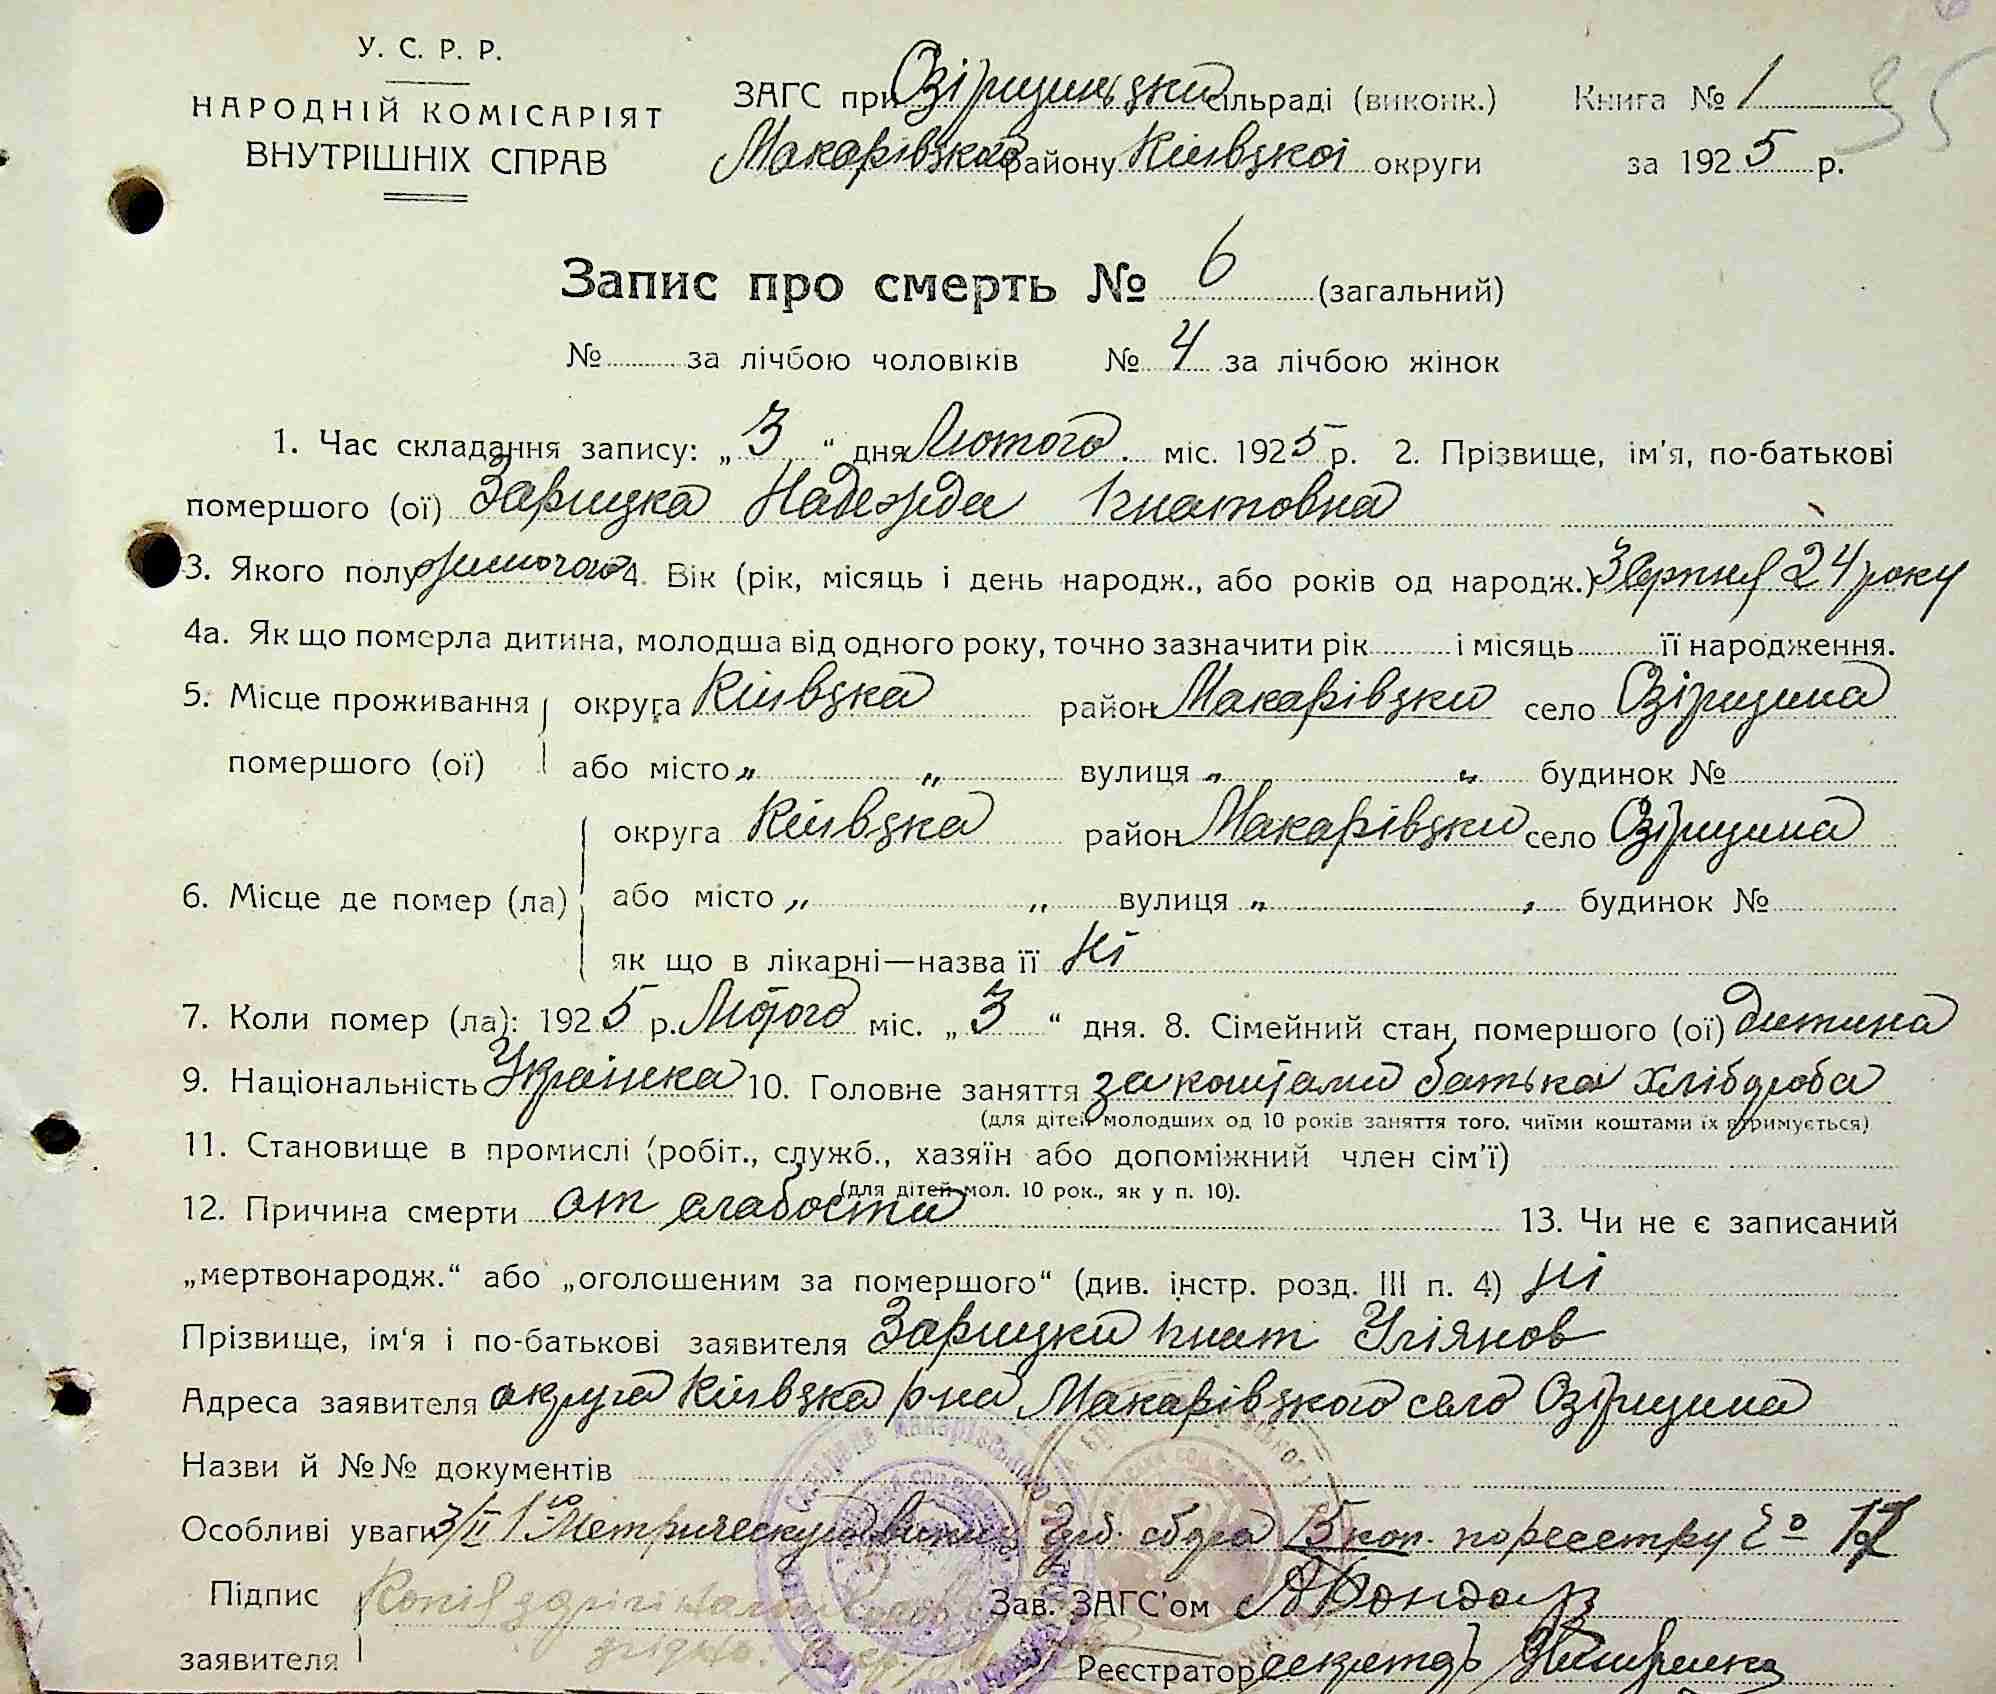 У. С. Р. Р.
НАРОДНІЙ КОМІСАРІЯТ
ВНУТРІШНІХ СПРАВ
ЗАГС при Озірщиньцки сільраді (виконк.)
Макарівзкаго району Київцкоі округи
Книга № 1
за 1925 р.
35
Запис про смерть № 6 (загальний)
№ за лічбою чоловіків № 4 за лічбою жінок
1. Час складання запису: „ 3 “ дня Лютого. міс. 1925 р. 2. Прізвище, ім'я, по-батькові
помершого (ої) Зарицка Надежда Ігнатовна
3. Якого полу жиночого 4. Вік (рік, місяць і день народж., або років од народж.) З Серпня 24 року
4а. Як що померла дитина, молодша від одного року, точно зазначити рік і місяць її народження.
5. Місце проживання округа Київцка район Макарівзки село Озірщина
помершого (ої) або місто „ „ вулиця „ „ будинок №
округа Київзка район Макарівзки село Озірщина
6. Місце де помер (ла) або місто „ „ вулиця „ „ будинок №
як що в лікарні—назва її Ні
7. Коли помер (ла): 1925 р. Лютого міс. „ 3 “ дня. 8. Сімейний стан помершого (ої) дитина
9. Національність Українка 10. Головне заняття за коштами батька хлібороба
(для дітей молодших од 10 років заняття того, чиїми коштами їх втримується)
11. Становище в промислі (робіт., служб., хазяїн або допоміжний член сім'ї)
(для дітей мол. 10 рок., як у п. 10).
12. Причина смерти от слабости 13. Чи не є записаний
„мертвонародж.“ або „оголошеним за помершого“ (див. інстр. розд. III п. 4) Ні
Прізвище, ім'я і по-батькові заявителя Зарицки Ігнат Уліянов
Адреса заявителя округа Київзка р-на Макарівзкого село Озірщина
Назви й №№ документів
Особливі уваги 3/II 1ю Метрическую выпись Гуд. сбора 15 коп. по реестру № 17
Підпис Копія з орігіналом
заявителя згідно.
Зав. ЗАГС'ом А Бондар
Реєстратор секретарь